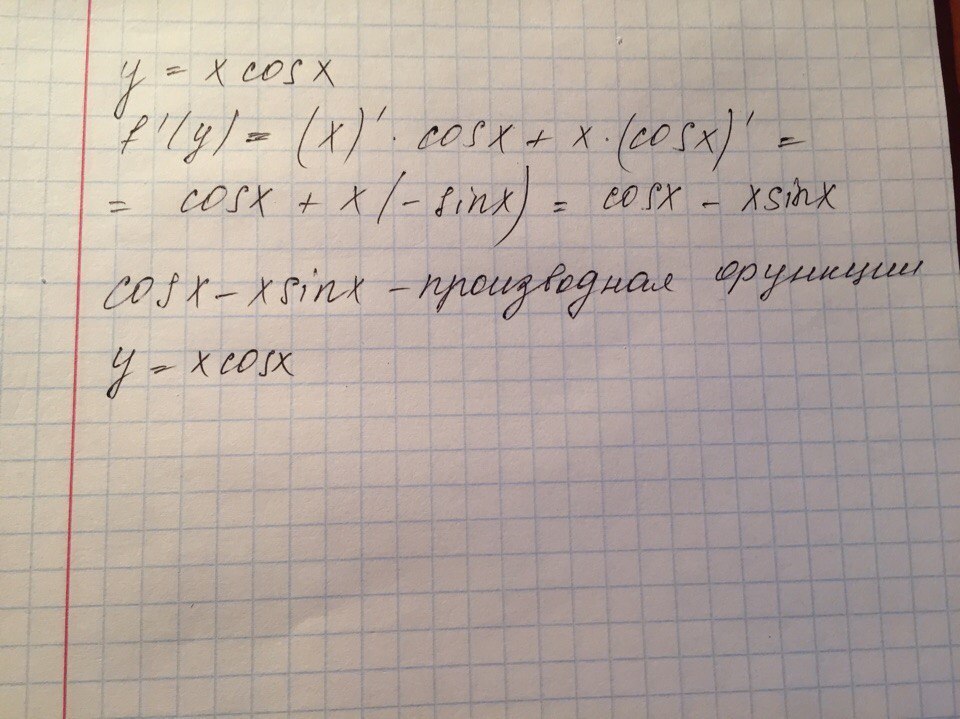 y = x cosx
f'(y) = (x)' · cosx + x · (cosx)' =
= cosx + x (- sinx) = cosx - xsinx
cosx - xsinx - производная функции
y = x cosx